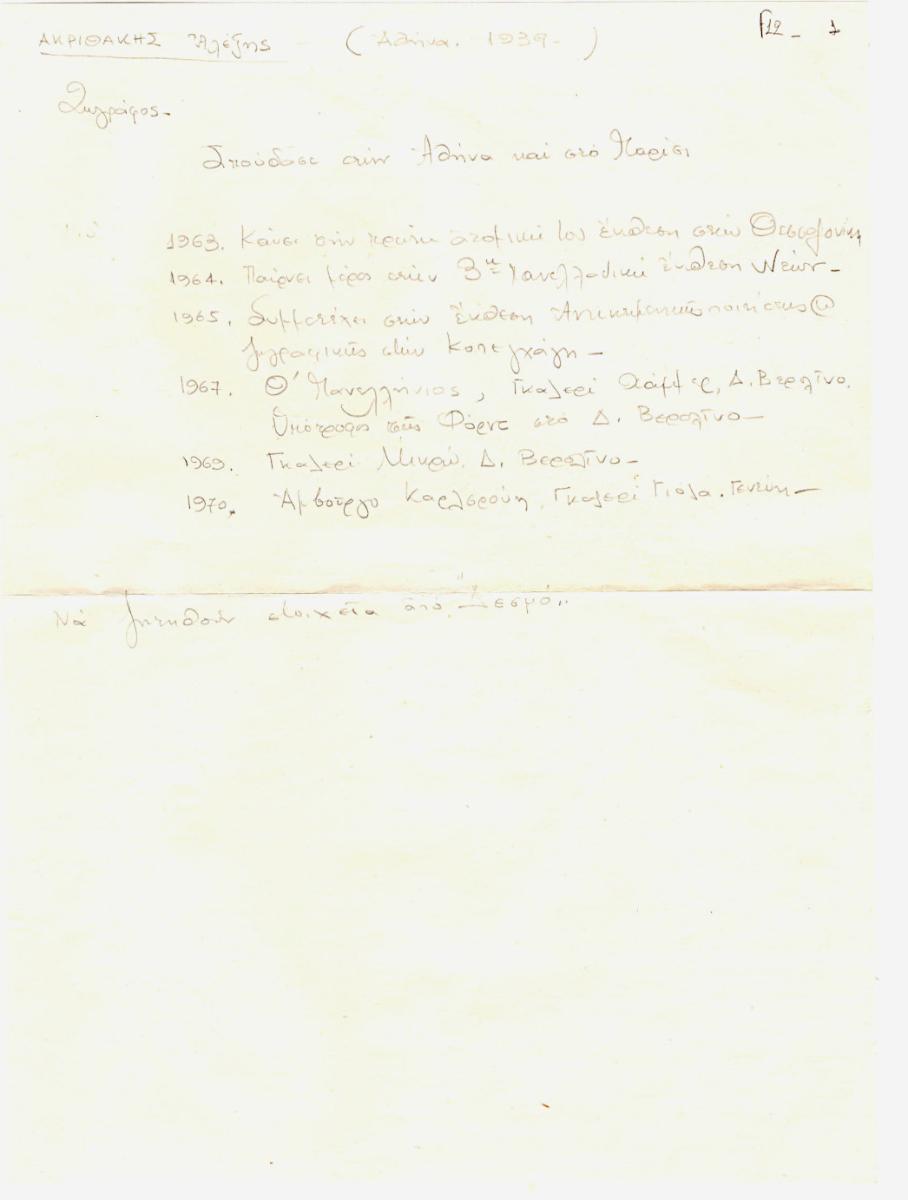 ΑΚΡΙΘΑΚΗΣ Ἀλέξης - (Ἀθήνα. 1939- ) Γ12 - 1
Ζωγράφος -
Σπούδασε στὴν Ἀθήνα καὶ στὸ Παρίσι
1963. Κάνει τὴν πρώτη ἀτομική του ἔκθεση στὴν Θεσσαλονίκη
1964. Παίρνει μέρος στὴν 3η Πανελλαδικὴ ἔκθεση Νέων -
1965. Συμμετέχει στὴν ἔκθεση Ἀντικειμενικῆς ποιήσεως
ζωγραφικῆς στὴν Κοπεγχάγη -
1967. Θ' Πανελλήνιος, Γκαλερὶ Χάμμερ, Δ. Βερολῖνο.
Ὑπότροφος τῆς Φόρντ στὸ Δ. Βερολῖνο -
1969. Γκαλερὶ Μικρὸ, Δ. Βερολῖνο -
1970. Ἀμβοῦργο Καρλσρούη, Γκαλερὶ Γιόλα. Γενεύη -
Νὰ ζητηθοῦν στοιχεῖα ἀπὸ "Δεσμό"